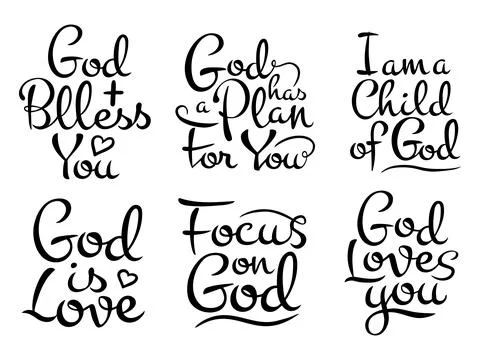 God
Blless
You
God has
a Plan
For You
I am a
Child
of God
God
is
Love
Focus
on
God
God
Loves
you